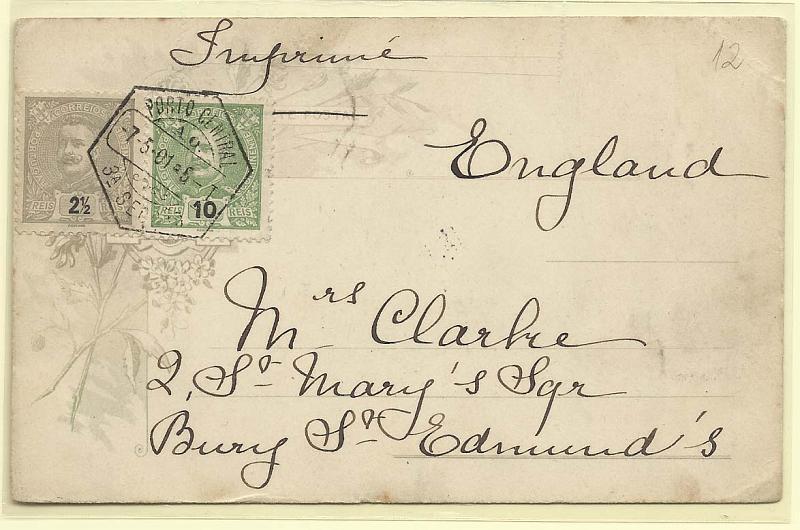 Imprimé
12
CORREIOS
PORTUGAL
2½
REIS
10
REIS
REIS
PORTO CENTRAL
-7-5-01
England
Mrs Clarke
2, St Mary's Sqr
Bury St Edmund's